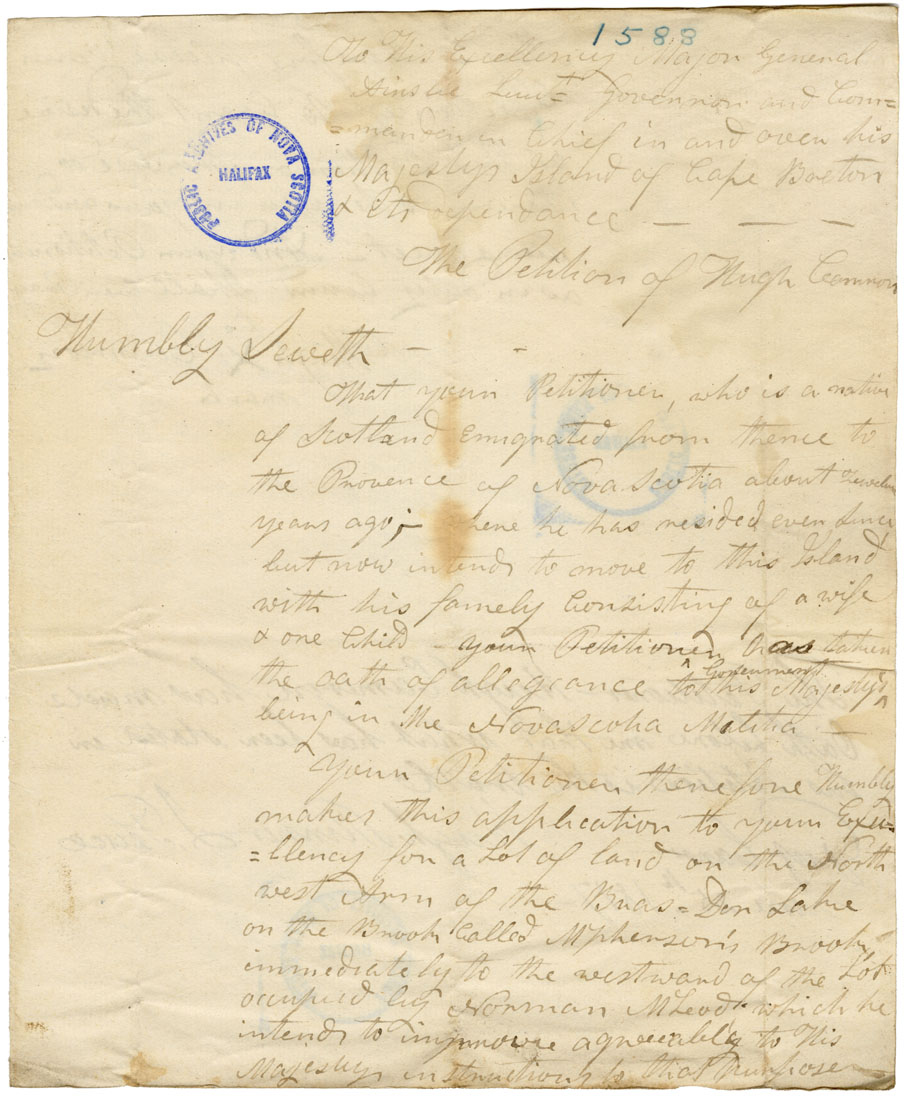 1588
To His Excellency Major General
Ainslie Lieut Governor and Com=
=mander in Chief in and over his
Majestys Island of Cape Breton
& Its Dependance — — —
PUBLIC ARCHIVES OF NOVA SCOTIA
HALIFAX
The Petition of Hugh Cameron
Humbly Seweth — -
That your Petitioner, who is a native
of Scotland emigrated from thence to
the Provence of Novascotia about
years ago; where he has resided ever since
but now intends to move to this Island
with his famely Consisting of a wife
& one Child — your Petitioner has taken
the oath of allegeance to his Majestys Government
being in the Novascotia Militia
Your Petitioner therefore Humbly
makes this application to your Exce=
=llency for a Lot of land on the North
west Arm of the Bras=Dor Lake
on the Brook Called McPherson's Brook,
immediately to the westward of the Lot
ocupied by Norman McLeod which he
intends to improve agreeably to His
Majestys instructions to that Purpose